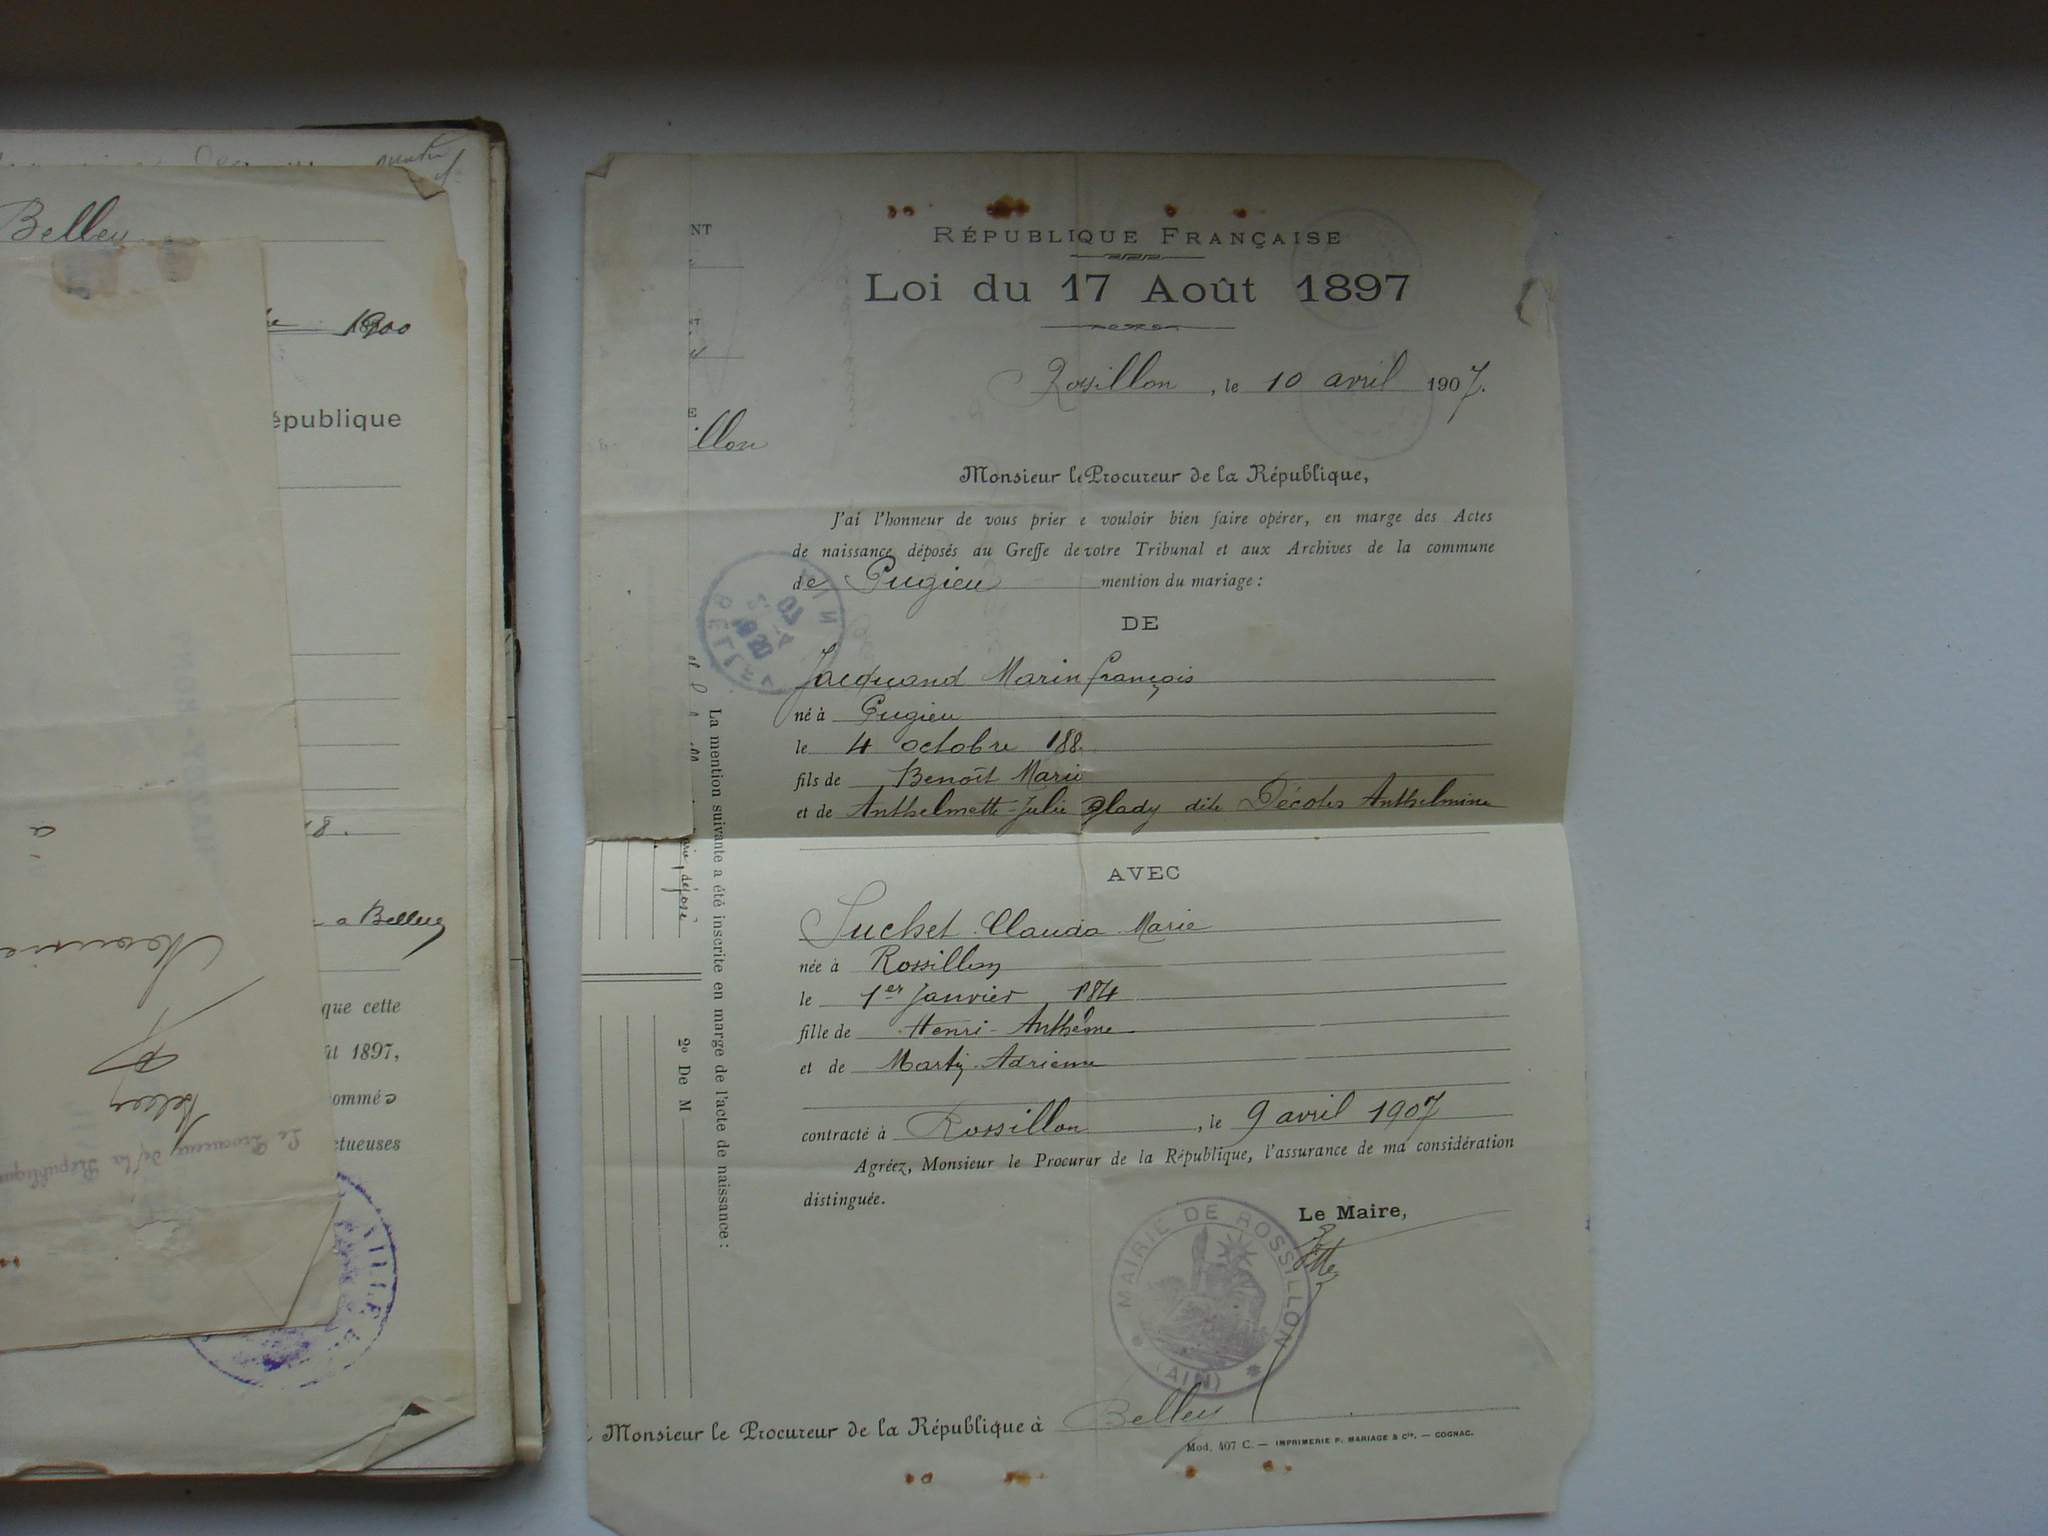 Belley
1900
épublique
18.
a
a Belley
que cette
ût 1897,
ommé
ctueuses
Le Procureur de la République
VILLE
NT
illon
RÉPUBLIQUE FRANÇAISE
Loi du 17 Août 1897
Rossillon, le 10 avril 1907.
Monsieur le Procureur de la République,
J'ai l'honneur de vous prier e vouloir bien faire opérer, en marge des Actes
de naissance déposés au Greffe de votre Tribunal et aux Archives de la commune
de Pugieu mention du mariage :
DE
Jacquand Marin françois
né à Pugieu
le 4 octobre 188
fils de Benoît Marie
et de Anthelmette-Julie Glady dite Décotes Anthelmine
AVEC
Suchet Clauda Marie
née à Rossillon
le 1er Janvier 184
fille de Henri-Anthême
et de Martin Adrienne
contracté à Rossillon, le 9 avril 1907
Agréez, Monsieur le Procurur de la République, l'assurance de ma considération
distinguée.
Le Maire,
MAIRIE DE ROSSILLON
(AIN)
Monsieur le Procureur de la République à Belley
Mod. 407 C. — IMPRIMERIE P. MARIAGE & Cie. — COGNAC.
La mention suivante a été inscrite en marge de l'acte de naissance :
2º De M
déposé
BELLEY AIN